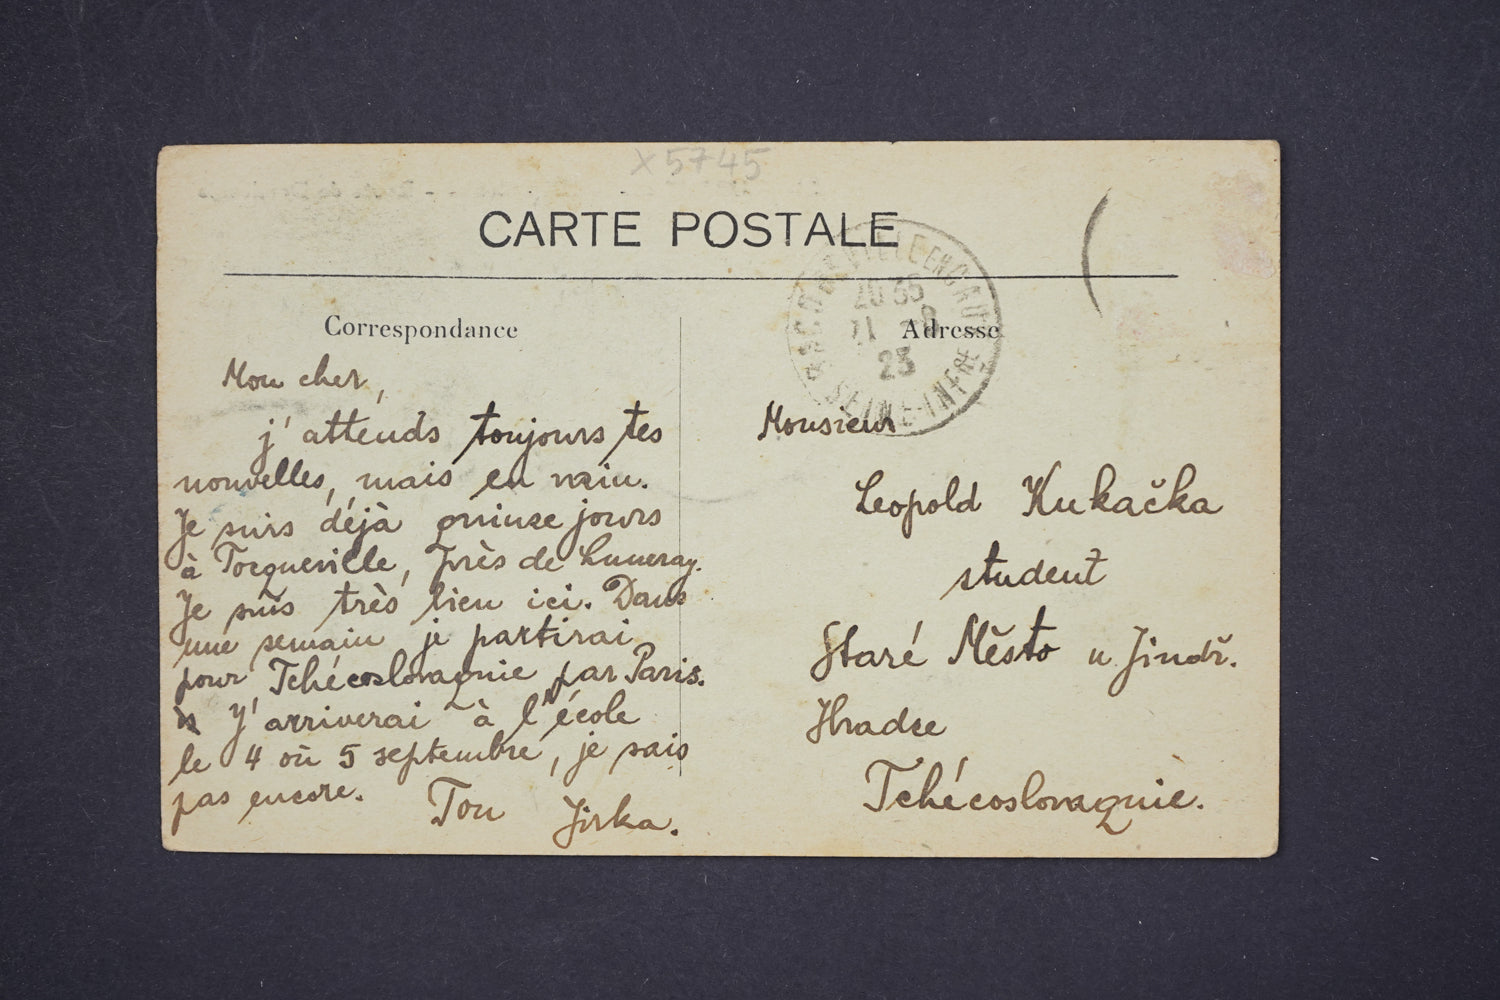 X 5745
CARTE POSTALE
BACQUEVILLE EN CAUX
20 35
11 -8
23
SEINE-INFRE
Correspondance
Adresse
Mon cher,
j'attends toujours tes
nouvelles, mais en vain.
Je suis déjà quinze jours
à Tocqueville, près de Luneray.
Je suis très bien ici. Dans
une semain je partirai
pour Tchécoslovaquie par Paris.
J'arriverai à l'école
le 4 où 5 septembre, je sais
pas encore.
Ton Jirka.
Monsieur
Leopold Kukačka
student
Staré Město u Jindř.
Hradce
Tchécoslovaquie.